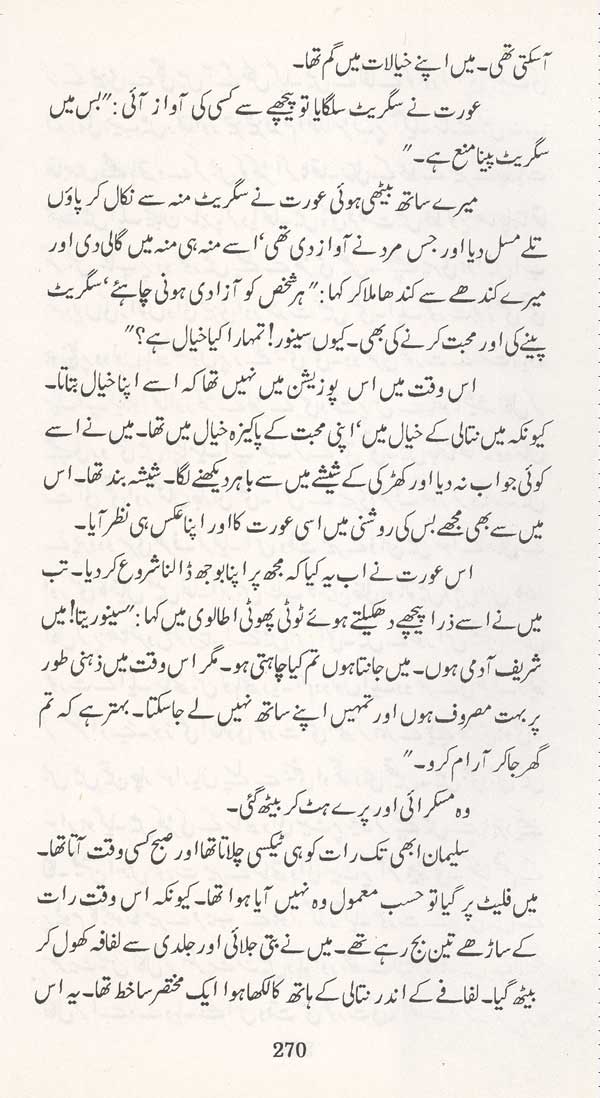 آسکتی تھی۔ میں اپنے خیالات میں گم تھا۔
عورت نے سگریٹ سلگایا تو پیچھے سے کسی کی آواز آئی: "بس میں
سگریٹ پینا منع ہے۔"
میرے ساتھ بیٹھی ہوئی عورت نے سگریٹ منہ سے نکال کر پاؤں
تلے مسل دیا اور جس مرد نے آواز دی تھی‘ اسے منہ ہی منہ میں گالی دی اور
میرے کندھے سے کندھا ملا کر کہا: "ہر شخص کو آزادی ہونی چاہئے‘ سگریٹ
پینے کی اور محبت کرنے کی بھی۔ کیوں سینور! تمہارا کیا خیال ہے؟"
اس وقت میں اس پوزیشن میں نہیں تھا کہ اسے اپنا خیال بتاتا۔
کیونکہ میں نتالی کے خیال میں‘ اپنی محبت کے پاکیزہ خیال میں تھا۔ میں نے اسے
کوئی جواب نہ دیا اور کھڑکی کے شیشے میں سے باہر دیکھنے لگا۔ شیشہ بند تھا۔ اس
میں سے بھی مجھے بس کی روشنی میں اسی عورت کا اور اپنا عکس ہی نظر آیا۔
اس عورت نے اب یہ کیا کہ مجھ پر اپنا بوجھ ڈالنا شروع کر دیا۔ تب
میں نے اسے ذرا پیچھے دھکیلتے ہوئے ٹوٹی پھوٹی اطالوی میں کہا: "سینوریتا! میں
شریف آدمی ہوں۔ میں جانتا ہوں تم کیا چاہتی ہو۔ مگر اس وقت میں ذہنی طور
پر بہت مصروف ہوں اور تمہیں اپنے ساتھ نہیں لے جا سکتا۔ بہتر ہے کہ تم
گھر جا کر آرام کرو۔"
وہ مسکرائی اور پرے ہٹ کر بیٹھ گئی۔
سلیمان ابھی تک رات کو ہی ٹیکسی چلاتا تھا اور صبح کسی وقت آتا تھا۔
میں فلیٹ پر گیا تو حسب معمول وہ نہیں آیا ہوا تھا۔ کیونکہ اس وقت رات
کے ساڑھے تین بج رہے تھے۔ میں نے بتی جلائی اور جلدی سے لفافہ کھول کر
بیٹھ گیا۔ لفافے کے اندر نتالی کے ہاتھ کا لکھا ہوا ایک مختصر سا خط تھا۔ یہ اس
270